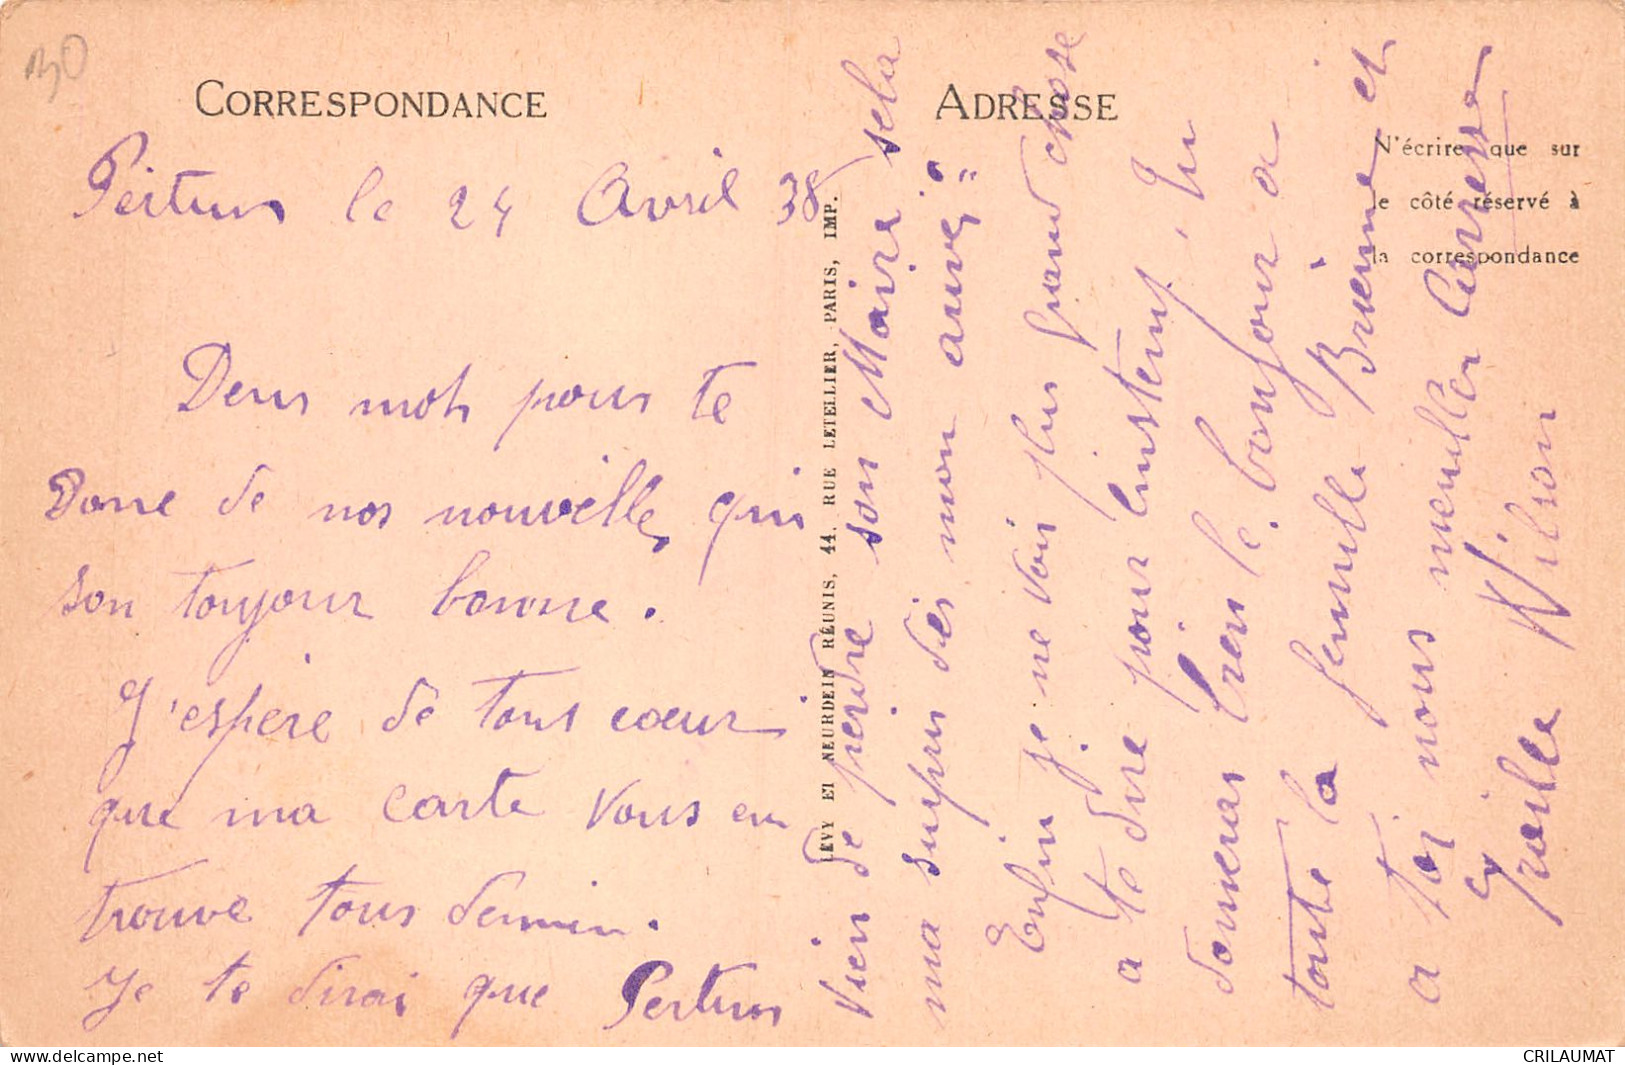 30
CORRESPONDANCE
ADRESSE
N'écrire que sur
le côté réservé à
la correspondance
Pertuis le 24 Avril 38
Deux mots pour te
Donne de nos nouvelles qui
son toujour bonne.
J'espère de tous coeur
que ma carte vous en
trouve tous demin.
Je te dirai que Pertuis
LEVY ET NEURDEIN RÉUNIS, 44, RUE LETELLIER, PARIS, IMP.
vien de perdre son Maire sela
ma supris dès mon arrivé
Enfin je ne vois plus grand chose
a te dire pour linstent, Tu
donneras bien le bonjour a
toute la famille Brième et
a toi nous meuller Caresse
Wilson